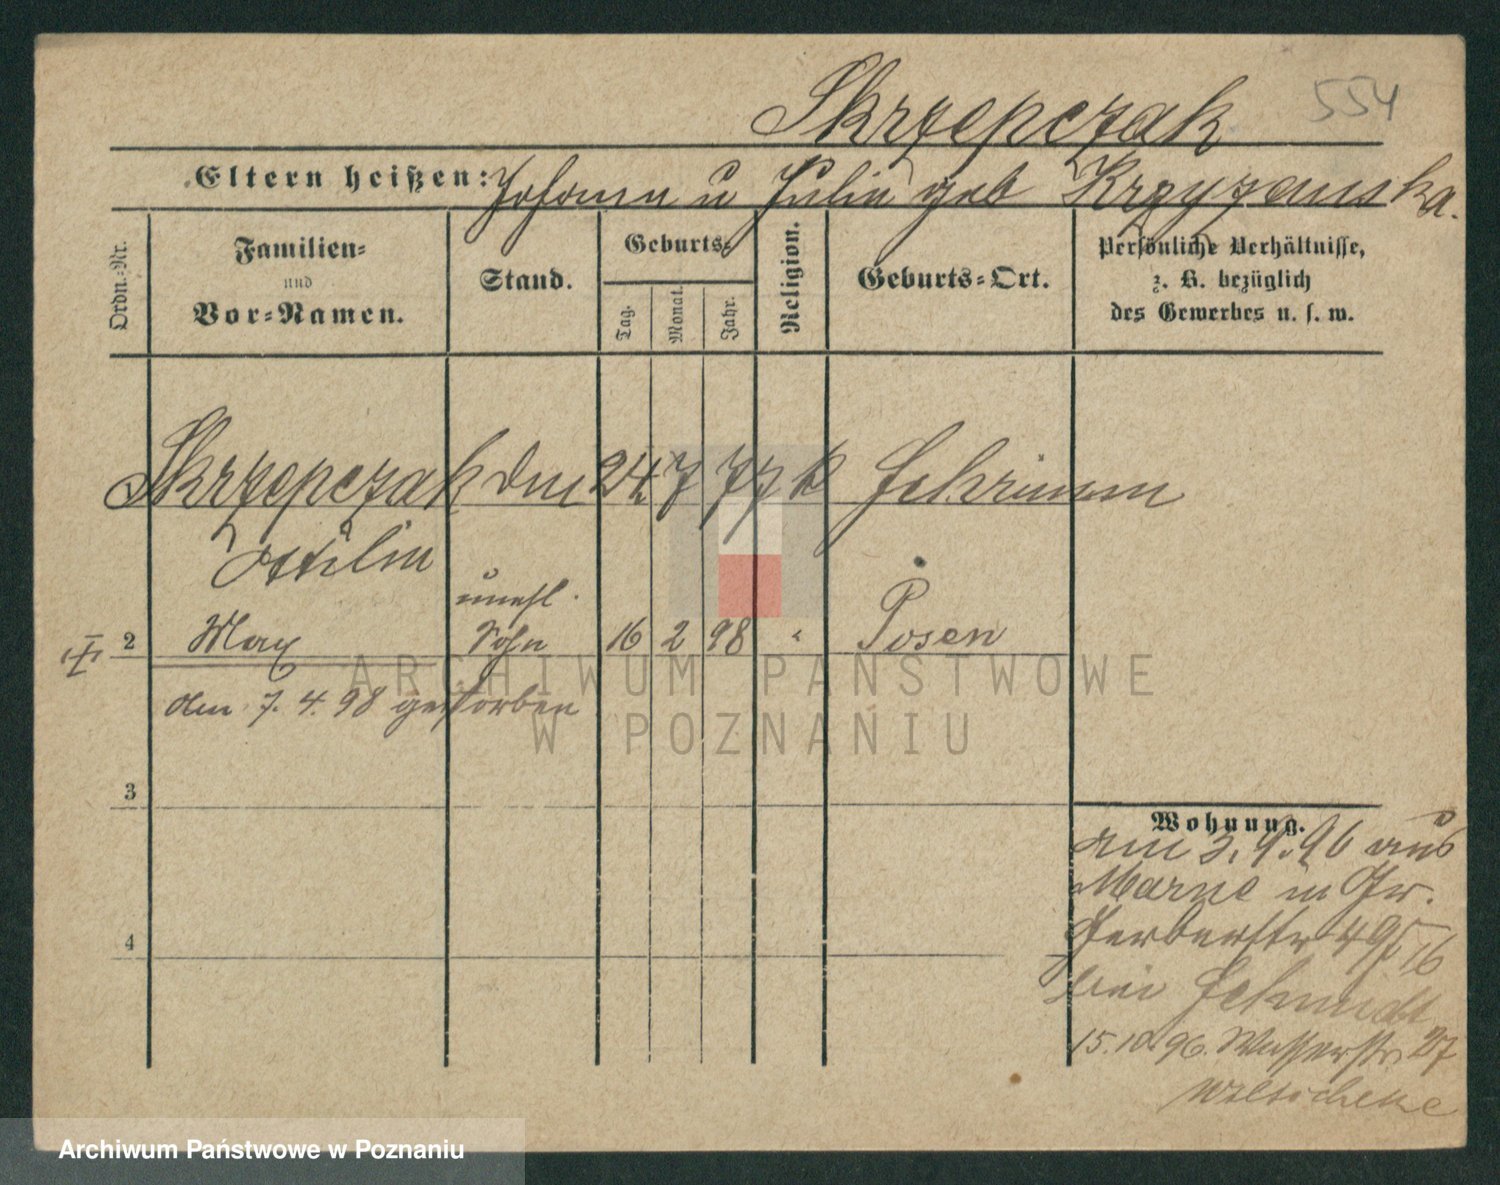 Skrzepczak 554
Eltern heißen: Johann u Julie geb Krzyzanska.
Ordn.-Nr.
Familien-
und
Vor-Namen.
Stand.
Geburts-
Tag.
Monat.
Jahr.
Religion.
Geburts-Ort.
Persönliche Verhältnisse,
z. B. bezüglich
des Gewerbes u. s. w.
Skrzepczak 24 7 77 k Schrimm
Ottilie
unehl.
2 Max Sohn 16 2 98 " Posen
den 7. 4. 98 gestorben
3
Wohnung.
am 3. 9. 96 aus
in Gr.
4
Gerberstr 49 16
bei Schmidt
15.10.96. Wasserstr. 27
ARCHIWUM PAŃSTWOWE
W POZNANIU
Archiwum Państwowe w Poznaniu